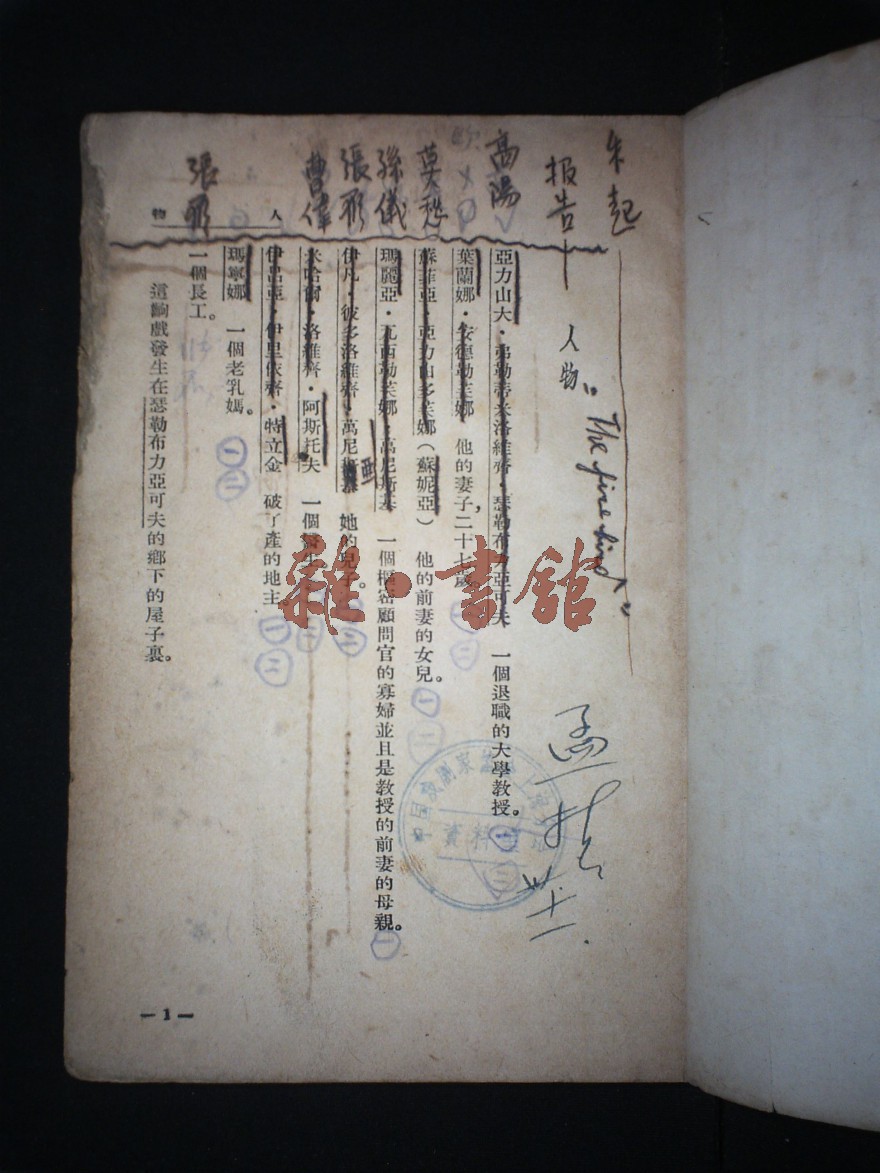 朱起
报告
人物 "The fire bird"
高陽
莫愁
孫儀
張彤
曹偉
張彤
人物
亞力山大·弗勒蒂米洛維齊·瑟勒布力亞可夫 一個退職的大學教授。 一 二
葉蘭娜·安德勒芙娜 他的妻子,二十七歲。 一 二
蘇菲亞·亞力山多芙娜(蘇妮亞) 他的前妻的女兒。 一 二
瑪麗亞·瓦西勒芙娜·萬尼斯基 一個樞密顧問官的寡婦並且是教授的前妻的母親。 一
伊凡·彼多洛維齊·萬尼斯基 她的兒子。 一 二
亞
米哈爾·洛維齊·阿斯托夫 一個醫生
伊呂亞·伊里依齊·特立金 破了產的地主。 一 二
瑪寧娜 一個老乳媽。 一 二
一個長工。
這齣戲發生在瑟勒布力亞可夫的鄉下的屋子裏。
資料
雜·書館
— 1 —